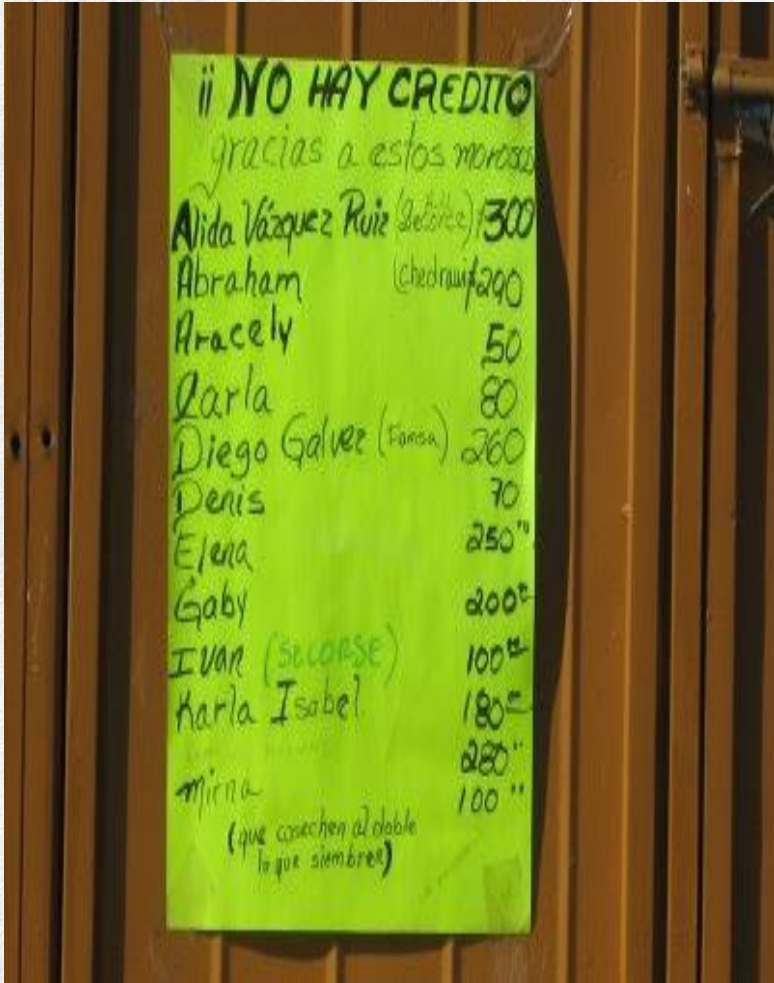 ¡¡ NO HAY CREDITO
gracias a estos morosos
Alida Vázquez Ruiz (Secorse) 1300
Abraham (chedraui) 1290
Aracely 50
Carla 80
Diego Galvez (Famsa) 260
Denis 70
Elena 250
Gaby 200
IVan (SECORSE) 100
Karla Isabel 180
280
mirna 100
(que cosechen al doble
lo que siembren)